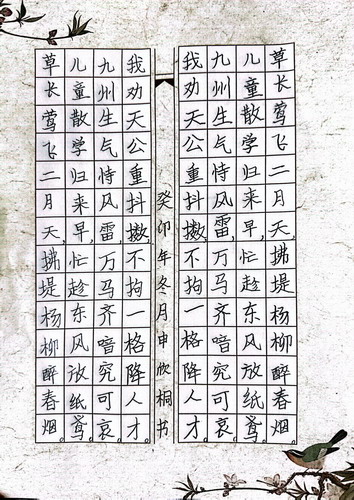 草长莺飞二月天,拂堤杨柳醉春烟。
儿童散学归来早,忙趁东风放纸鸢。
九州生气恃风雷,万马齐喑究可哀。
我劝天公重抖擞,不拘一格降人才。
癸卯年冬月申欣桐书
我劝天公重抖擞,不拘一格降人才。
九州生气恃风雷,万马齐喑究可哀。
儿童散学归来早,忙趁东风放纸鸢。
草长莺飞二月天,拂堤杨柳醉春烟。